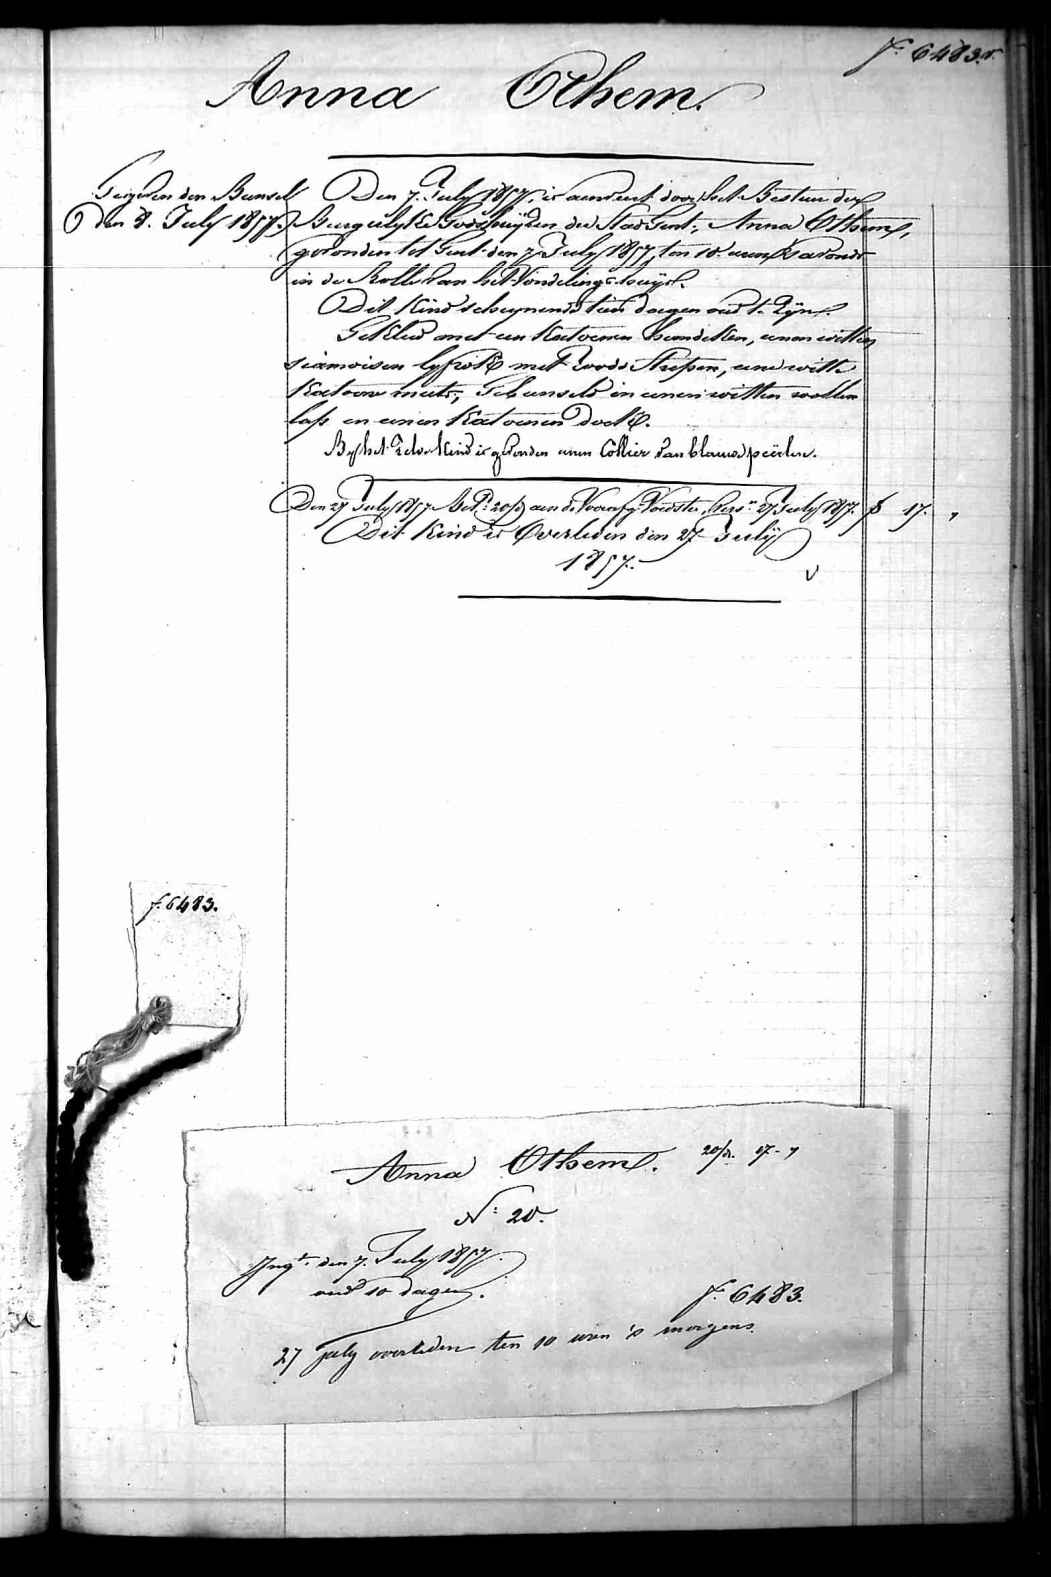 f.° 6483.r.
Anna Othem.
den Bundel
den 8. July 1857.
Den 7. July 1857, is aenveert door het Bestuer der
Burgerlyke Godshuyzen der Stad Gent, Anna Othem,
gevonden tot Gent den 7 July 1857, ten 10 uren 's avonds
in de Rolle van het Vondelingshuys.
Dit Kind scheynende tien dagen oud te zyn.
Gekleed met een Katoenen hemdeken, eenen witten
siamoisen lyfrok met roode Strepen, eene witte
Katoene muts, Gebunseld in eenen witten wollen
laps en eenen Katoenen doek.
By het zelve Kind is gevonden eenen Collier van blauwe peirlen.
Den 27 July 1857 20/d aen de Voedster, 27 July 1857. f 17. "
Dit Kind is Overleden den 27 July
1857.
f. 6483.
Anna Othem. 20/d. 17 - "
N.° 20.
Ing.t den 7. July 1857.
oud 10 dagen.
f.° 6483.
27 july overleden ten 10 uren 's morgens.